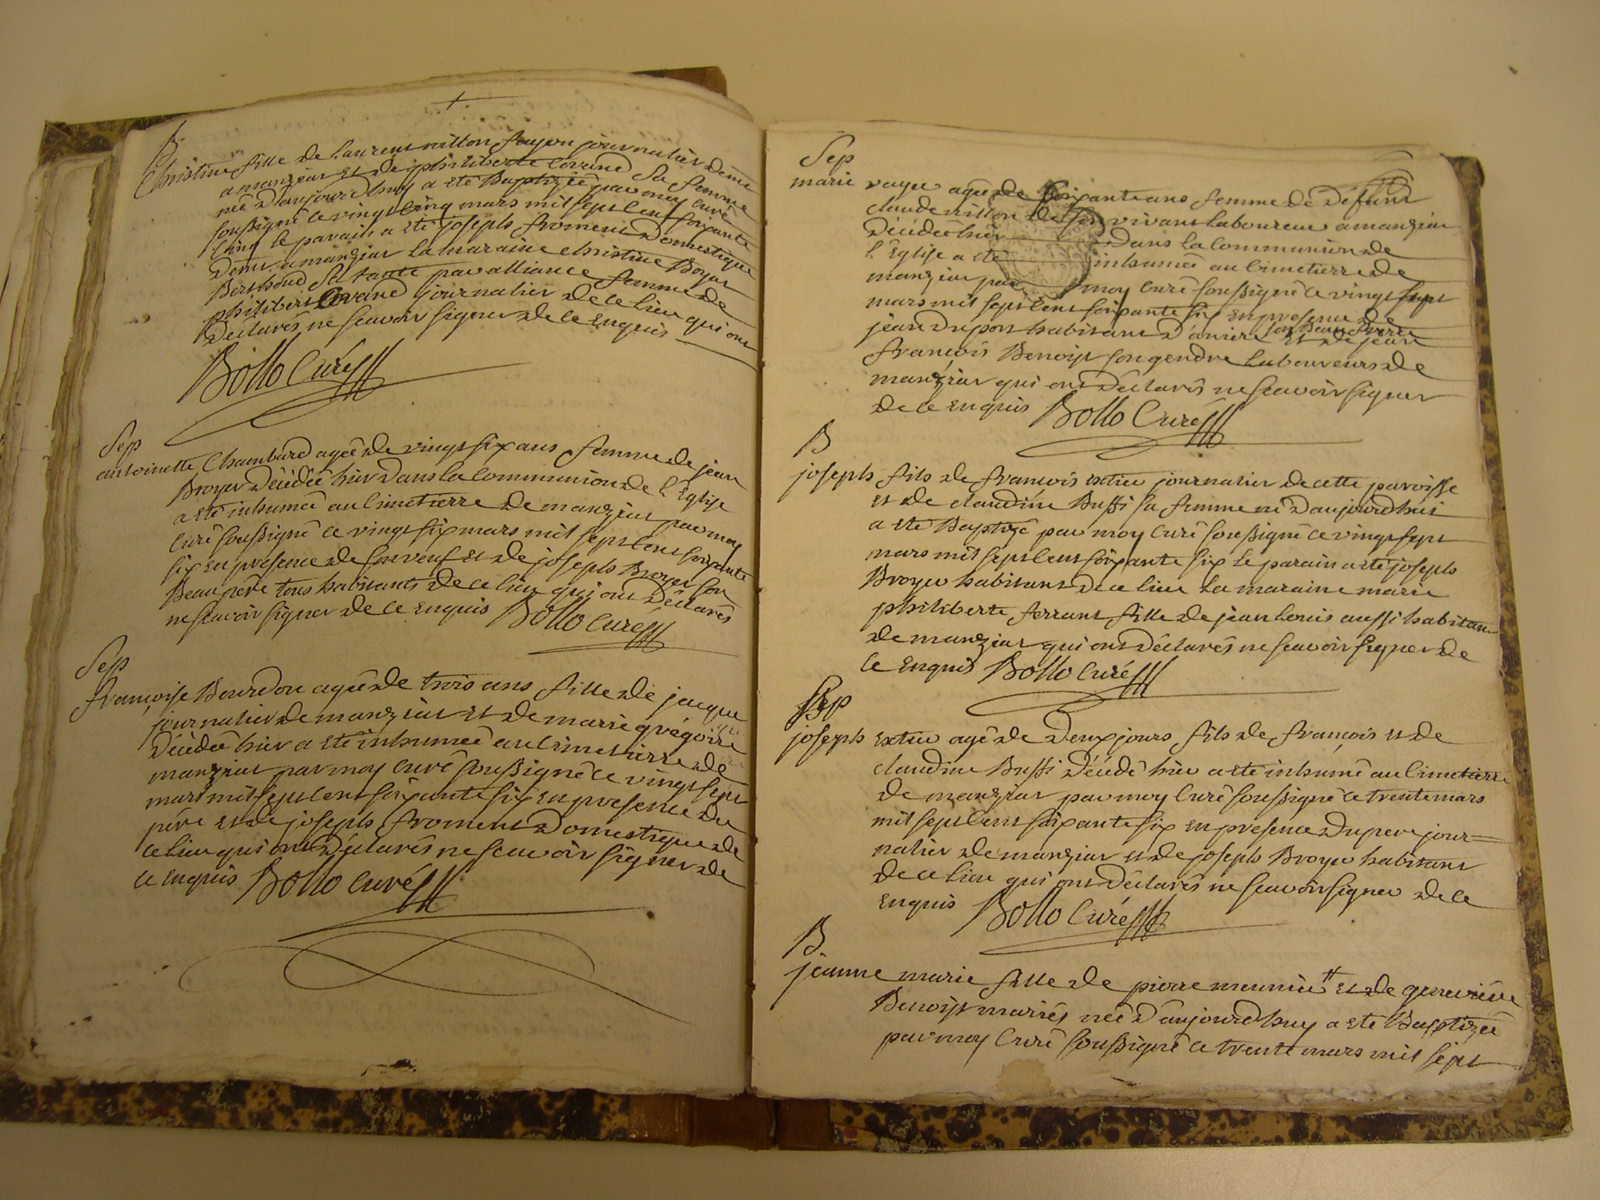 B
Christine fille de Laurent nitton foujou journalier demt
a manziat et de philiberte Covand sa femme
née d'aujourd'huy a eté Baptizée par moy curé
soussigné ce vingt cinq mars mil sept cent soixante
le parain a eté joseph froment Domestique
demt a manziat la maraine christine Boyat
sa tante par alliance femme de
philibert Covand journalier de ce lieu qui ont
declarés ne scavoir signer de ce Enquis
Bollo Curé
Sep
antoinette Chambard agée de vingt six ans femme de jean
Broyer Décédée hier dans la Communion de l'Eglise
a eté inhumée au Cimetierre de manziat par moy
Curé soussigné ce vingt six mars mil sept cent soixante
six En presence de son veuf et de joseph Broyer son
Beau pere tous habitants de ce lieu qui ont déclarés
ne scavoir signer de ce Enquis Bollo Curé
Sep
françoise Bourdon agée de trois ans fille de jacque
journalier de manziat et de marie grégoire
Décédée hier a eté inhumée au Cimetierre de
manziat par moy Curé soussigné ce vingt sept
mars mil sept cent soixante six En presence du
pere et de joseph froment Domestique de
ce lieu qui ont déclarés ne scavoir signer de
ce Enquis Bollo Curé
Sep
marie vayer agée de soixante ans femme de défunt
claude nitton de son vivant laboureur a manziat
Décédée hier dans la Communion de
l'Eglise a eté inhumée au Cimetierre de
manziat par moy Curé soussigné ce vingt sept
mars mil sept cent soixante six En presence de
jean Duport habitant d'aniere son Beau frere et de jean
françois Benoist son gendre Laboureurs de
manziat qui ont Déclarés ne scavoir signer
de ce Enquis Bollo Curé
B
joseph fils de françois extier journalier de cette paroisse
et de claudine Bussi sa femme né d'aujourd'hui
a eté Baptizé par moy Curé soussigné ce vingt sept
mars mil sept cent soixante six Le parain a eté joseph
Broyer habitant de ce lieu La maraine marie
philiberte ferrant fille de jean Louis aussi habitant
de manziat qui ont Déclarés ne scavoir signer de
ce Enquis Bollo Curé
Sep
joseph extier agé de Deux jours fils de françois et de
claudine Bussi Décédé hier a eté inhumé au Cimetierre
de manziat par moy Curé soussigné ce trente mars
mil sept Cent soixante six En presence du pere jour=
nalier de manziat et de joseph Broyer habitant
de ce Lieu qui ont Déclarés ne scavoir signer de ce
Enquis Bollo Curé
B
jeanne marie fille de pierre meunier et de genevieve
Benoist mariés née d'aujourd'huy a eté Baptizée
par moy Curé soussigné ce trente mars mil sept